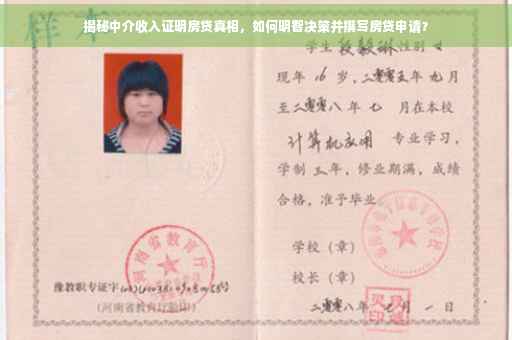 揭秘中介收入证明房贷真相，如何明智决策并撰写房贷申请？
样本
学生 段毅琳 性别 女
现年 16 岁，二零零五年 九 月
至 二零零八 年 七 月在本校
计算机应用 专业学习，
学制 三 年，修业期满，成绩
合格，准予毕业
学校（章）
校长（章）
二零零八年 月 一 日
河南省教育厅
豫教职专证字
(河南省教育厅验印)